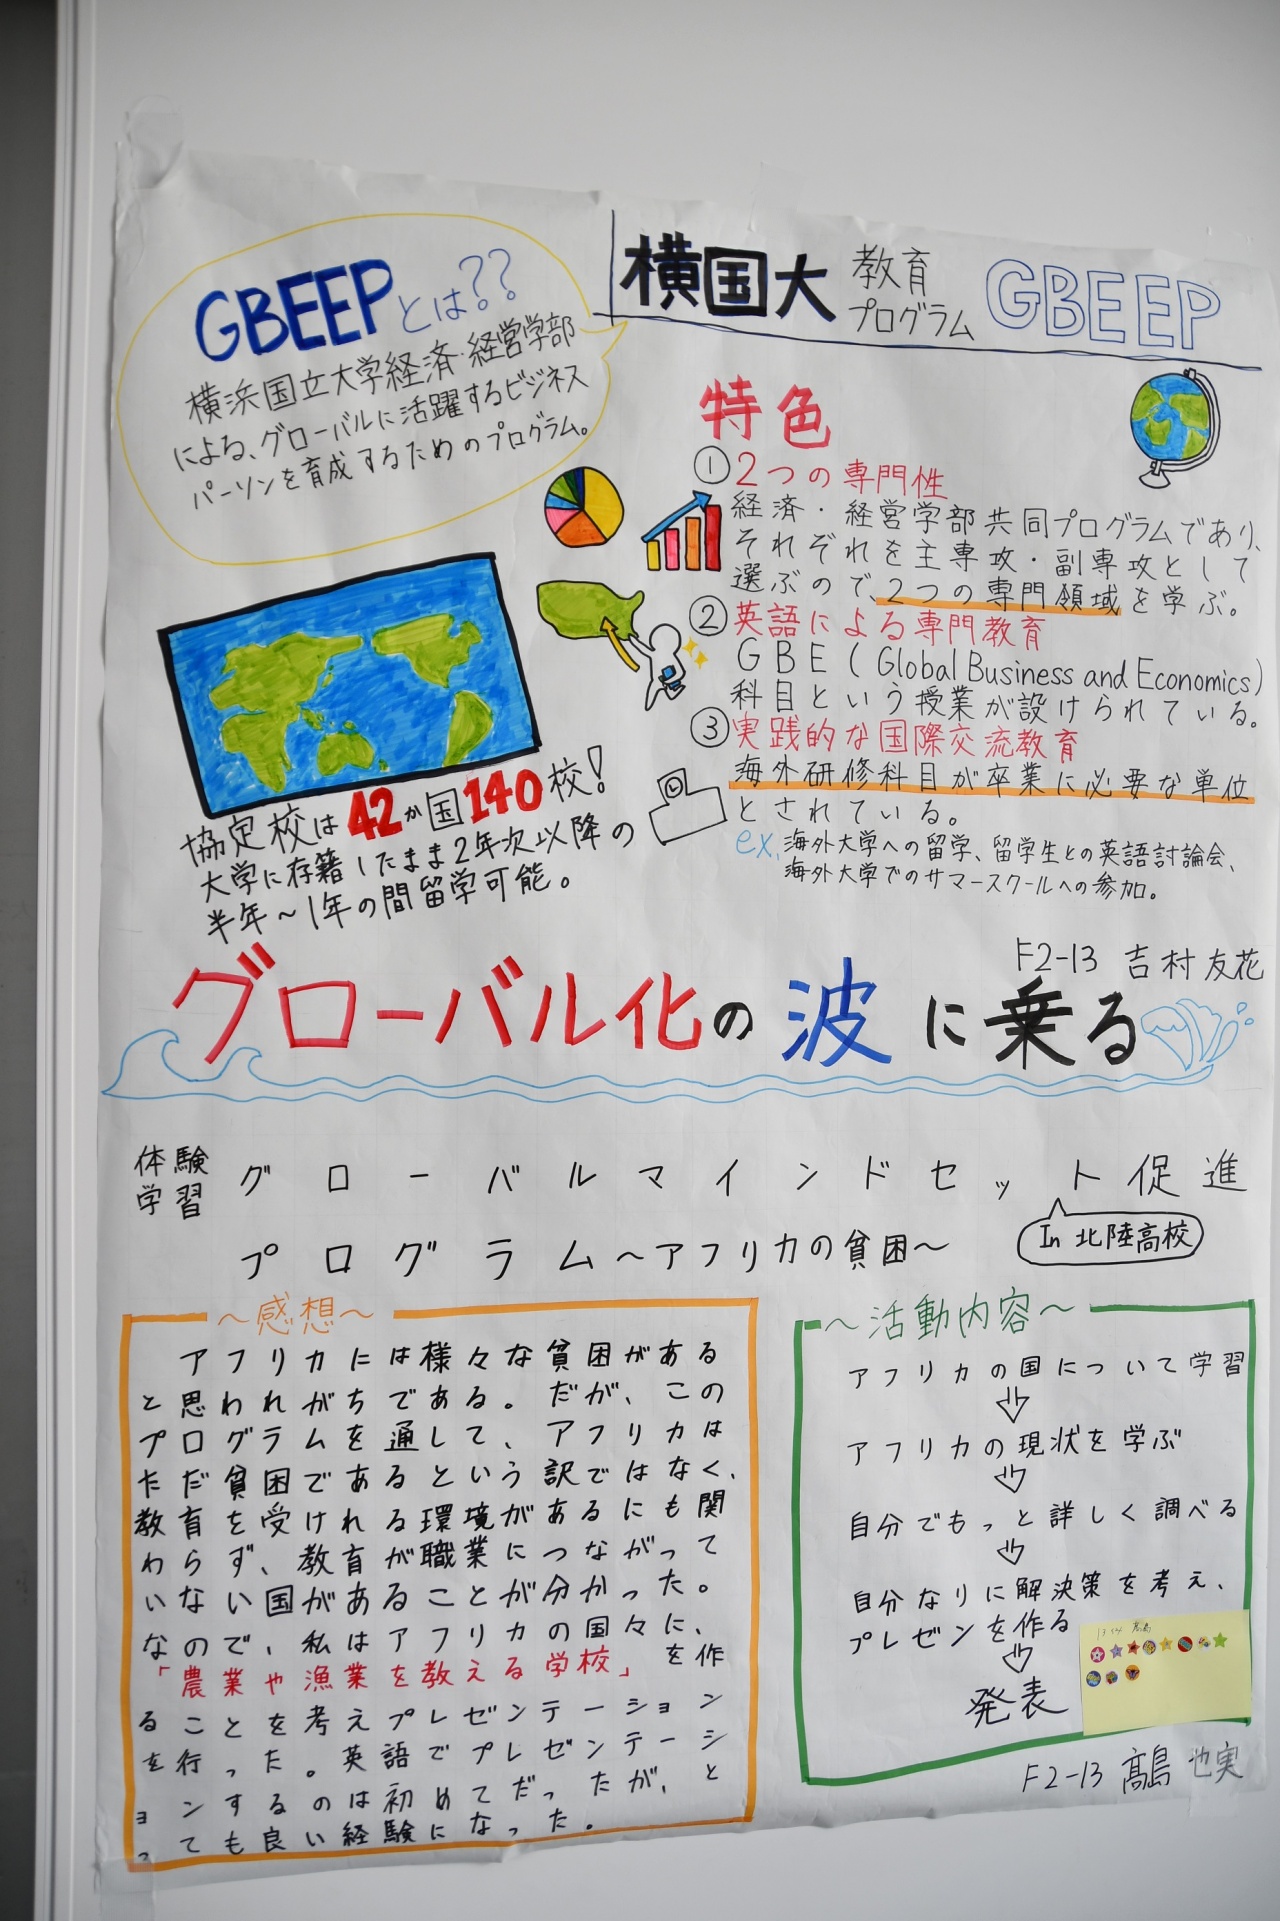 横国大 教育プログラム GBEEP
GBEEPとは??
横浜国立大学経済・経営学部
による、グローバルに活躍するビジネス
パーソンを育成するためのプログラム。
特色
①2つの専門性
経済・経営学部共同プログラムであり、
それぞれを主専攻・副専攻として
選ぶので、2つの専門領域を学ぶ。
②英語による専門教育
GBE(Global Business and Economics)
科目という授業が設けられている。
③実践的な国際交流教育
海外研修科目が卒業に必要な単位
とされている。
ex.海外大学への留学、留学生との英語討論会、
海外大学でのサマースクールへの参加。
協定校は42か国140校!
大学に存籍したまま2年次以降の
半年~1年の間留学可能。
F2-13 吉村友花
グローバル化の波に乗る
体験
学習
グローバルマインドセット促進
プログラム~アフリカの貧困~
In 北陸高校
~感想~
アフリカには様々な貧困がある
と思われがちである。だが、この
プログラムを通して、アフリカは
ただ貧困であるという訳ではなく、
教育を受けれる環境があるにも関
わらず、教育が職業につながって
いない国があることが分かった。
なので、私はアフリカの国々に、
「農業や漁業を教える学校」を作
ることを考えプレゼンテーション
を行った。英語でプレゼンテーシ
ョンするのは初めてだったが、と
っても良い経験になった。
~活動内容~
アフリカの国について学習
アフリカの現状を学ぶ
自分でもっと詳しく調べる
自分なりに解決策を考え、
プレゼンを作る
発表
F2-13 髙島 也実